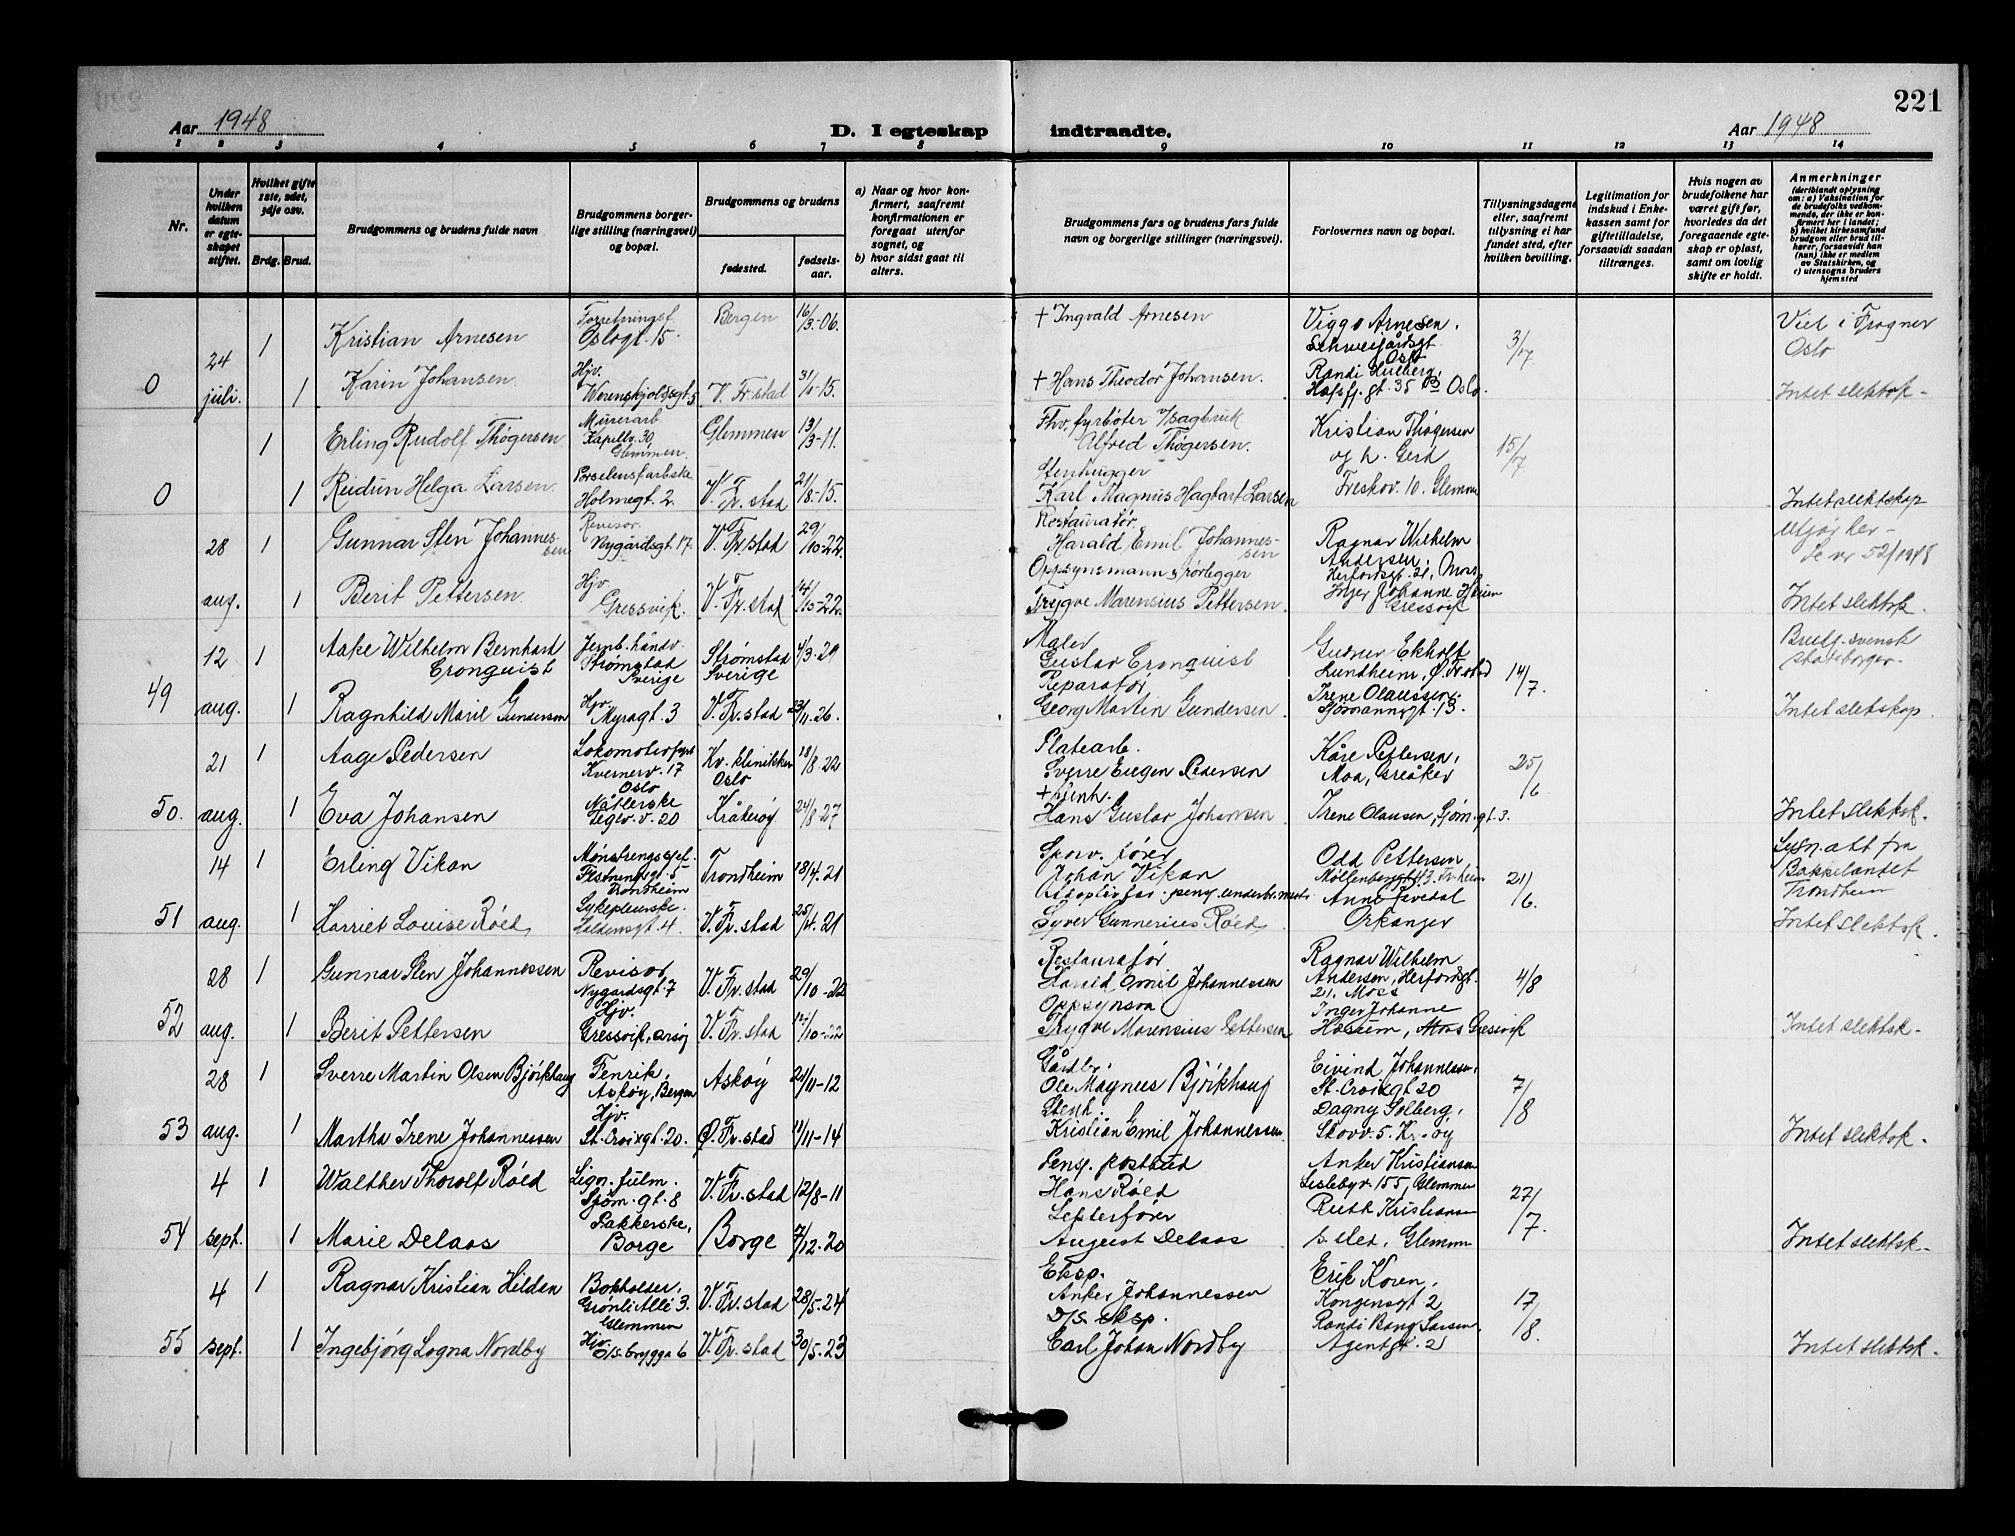 221
Aar 1948
D. I egteskap indtraadte.
Aar 1948
1 2 3 4 5 6 7 8 9 10 11 12 13 14
Nr.
Under hvilken datum er egteskapet stiftet.
Hvilket gifte 1ste, 2det, 3dje osv.
Brdg. Brud.
Brudgommens og brudens fulde navn
Brudgommens borgerlige stilling (næringsvei) og bopæl.
Brudgommens og brudens
fødested.
fødselsaar.
a) Naar og hvor konfirmert, saafremt konfirmationen er foregaat utenfor sognet, og
b) hvor sidst gaat til alters.
Brudgommens fars og brudens fars fulde navn og borgerlige stillinger (næringsvei).
Forlovernes navn og bopæl.
Tillysningsdagene eller, saafremt tillysning ei har fundet sted, efter hvilken bevilling.
Legitimation for indskud i Enkekassen samt for giftetilladelse, forsaavidt saadan tiltrænges.
Hvis nogen av brudefolkene har været gift før, hvorledes da det foregaaende egteskap er opløst, samt om lovlig skifte er holdt.
Anmerkninger
(deriblandt oplysning om: a) Vaksination for de brudefolks vedkommende, der ikke er konfirmert her i landet; b) hvilket kirkesamfund brudgom eller brud tilhører, forsaavidt han (hun) ikke er medlem av Statskirken, og c) utensogns bruders hjemsted
24 1 Kristian Arnesen Oslogt. 15. Bergen 16/3-06. + Ingvald Arnesen Viggo Arnesen, Schweigårdsgt Oslo 3/7 Viet i Frogner Oslo
0 juli. 1 Karin Johansen Hjv. Werenskjoldsgt. 5 V. Fr.stad 31/1-15. + Hans Theodor Johansen. Hafsfj. gt. 35 B Oslo. Intet slektsk.
1 Erling Rudolf Thøgersen Murerarb. Kapellv. 30, Glemmen. Glemmen 13/3-11. Fhv. fyrbøter Alfred Thøgersen. Kristian Thøgersen og h. Gerd 15/7
0 1 Reidun Helga Larsen Porselensfarbske Holmegt. 2. V. Fr.stad 21/8-15. Stenhugger Karl Magnus Hagbart Larsen Treskov. 10. Glemm Intet slektskap
28 1 Gunnar Sten Johannessen Revisor. Nygårdsgt. 17. V. Fr.stad 29/10-22. Restauratør Harald Emil Johannessen Ragnar Wilhelm Andersen, Moss Utgår her - Se nr 52/1948
aug. 1 Berit Pettersen Hjv. Gressvik. V. Fr.stad 14/10-22. Oppsynsmann, rørlegger Trygve Marensius Pettersen. Inger Johanne Gressvik Intet slektsk.
12 1 Aake Wilhelm Bernhard Cronquist Jernb. håndv. Strømstad Sverige Strømstad Sverige 4/3-29 Maler Gustav Cronquist Gudrun Ekholt Lundheim, Ø. Fr.stad 14/7. Brudg. svensk statsborger.
49 aug. 1 Ragnhild Marie Gundersen Hjv. Myragt. 3 V. Fr.stad 23/11-26. Reparatør Georg Martin Gundersen Irene Olaussen, Sjømannsgt. 13. Intet slektskap.
21 1 Aage Pedersen Lokomotivfyrb Kvernerv. 17 Oslo Kv. klinikken Oslo 18/8-22 Platearb. Sverre Eugen Pedersen Kåre Pettersen, Moa, Greåker 25/6
50. aug. 1 Eva Johansen Nåtlerske Teglv. v. 20 Kråkerøy 24/8-27 + Stenh. Hans Gustav Johansen Irene Olausen, Sjøm. gt. 3. Intet slektsk.
14 1 Erling Vikan Mønstringssjef. Festningsgt. 5 Trondheim Trondheim 18/4-21 Sporv. fører Johan Vikan Odd Pettersen, Møllenbergt 43. Tr.heim 21/6. Lysn. att fra Bakkelandet Trondheim
51 aug. 1 Harriet Louise Røed, Sykepleierske. Haldensgt. 4 V. Fr.stad 25/4-21 Syver Gunnerius Røed, Orkanger Intet slektsk.
28 1 Gunnar Sten Johannessen Revisor, Nygårdsgt. 7 V. Fr.stad 29/10-22 Restauratør Harald Emil Johannessen Ragnar Wilhelm Andersen, Herfordsgt. 21. Moss 4/8
52 aug. 1 Berit Pettersen Hjv. Gressvik, Onsøy V. Fr.stad 14/10-22 Oppsynsm Trygve Marensius Pettersen Inger Johanne Gressvik Intet slektsk.
28 1 Sverre Martin Olsen Bjørkhaug Fenrik, Askøy, Bergen Askøy 21/11-12 Gårdbr. Ole Magnus Bjørkhaug Eivind Johannessen, St. Croixgt 20 7/8
53 aug. 1 Martha Irene Johannessen Hjv. St. Croixgt. 20. Ø. Fr.stad 11/11-14 Stenh. Kristian Emil Johannessen Dagny Solberg, Skovv. 5. Kr.øy Intet slektsk.
4 1 Walther Thorolf Røed Lign. fulm. Sjøm. gt. 8 V. Fr.stad 12/8-11 Pensj. postbud Hans Røed Anker Kristiansen Lislebyv. 155, Glemmen 27/7.
54 sept. 1 Marie Delaas Pakkerske, Borge Borge 7/12-20 Lekterfører August Delaas Ruth Kristiansen s. sted. Glemmn Intet slektsk.
4 1 Ragnar Kristian Hilden Bokholder, Grønli Allé 3. Glemmen V. Fr.stad 28/5-24 Eksp. Anker Johannessen Erik Koren, Kongensgt 2 17/8.
55 sept. 1 Ingebjørg Logna Nordby Hjv. D/S brygga 6 V. Fr.stad 30/5-23 D/S. eksp. Carl Johan Nordby Randi Bang Larsen. Agentgt. 21 Intet slektsk.